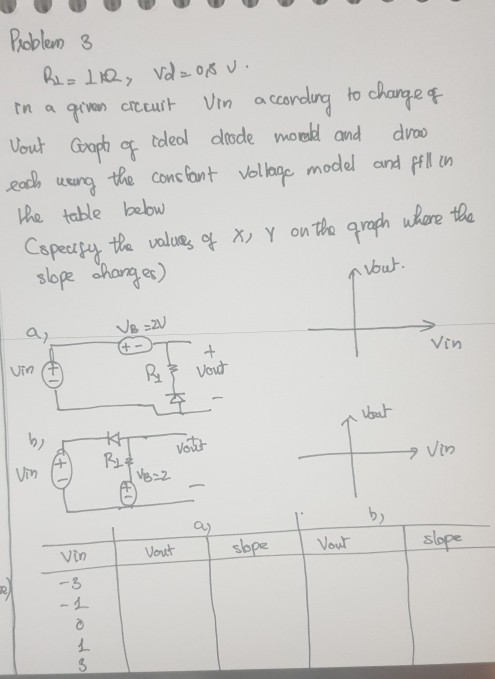 Problem 3
R1 = 1 kΩ, Vd = 0,8 V.
in a given circuit Vin according to change of
Vout Graph of ideal diode and draw
each using the constant voltage model and fill in
the table below
(specify the values of X, Y on the graph where the
slope changes)
Vout.
Vin
a,
VB = 2V
Vin
+ -
+ -
R1
+
Vout
-
b,
Vout
Vin
Vin
+ -
R1
Vout
VB = 2
+ -
-
a, b,
Vin Vout slope Vout slope
-3
-1
0
1
3